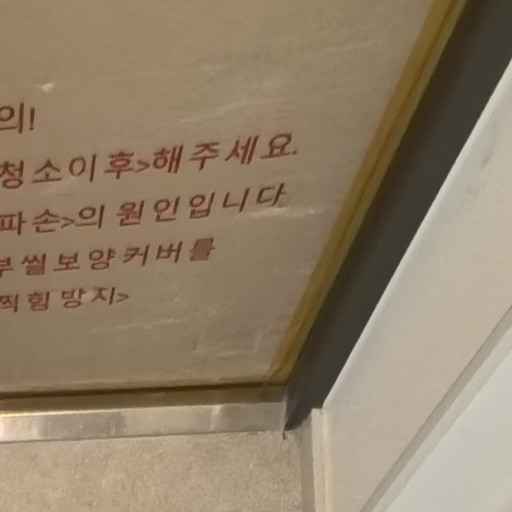 의!
청소이후>해주세요.
파손>의 원인입니다
부씰보양커버를
찍힘방지>